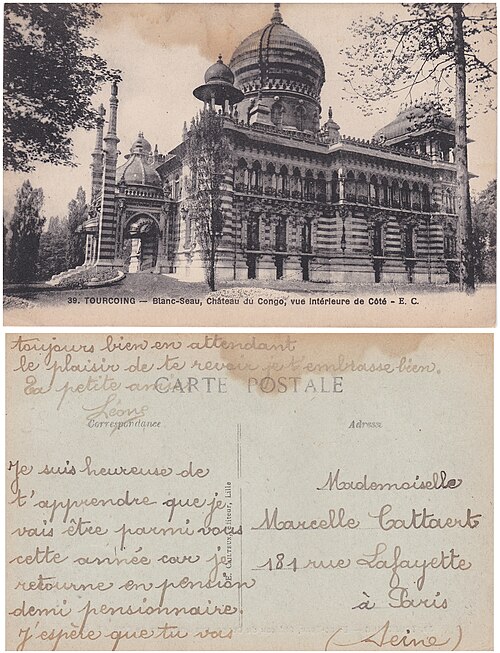 39. TOURCOING — Blanc-Seau, Château du Congo, vue intérieure de Côté - E. C.
toujours bien en attendant
le plaisir de te revoir je t'embrasse bien.
Ta petite amie
Léone
CARTE POSTALE
Correspondance
Adresse
Je suis heureuse de
t'apprendre que je
vais être parmi vous
cette année car je
retourne en pension
demi pensionnaire.
J'espère que tu vas
Editeur, Lille
Mademoiselle
Marcelle Cattaert
181 rue Lafayette
à Paris
(Seine)